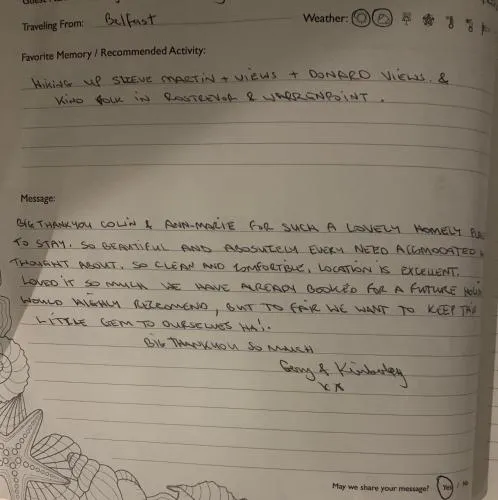 Traveling From: Belfast
Weather:
Favorite Memory / Recommended Activity:
HIKING UP SLIEVE MARTIN + VIEWS + DONARD VIEWS. &
KIND FOLK IN ROSTREVOR & WARRENPOINT.
Message:
BIG THANKYOU COLIN & ANN-MARIE FOR SUCH A LOVELY HOMELY
TO STAY. SO BEAUTIFUL AND ABSOLUTELY EVERY NEED ACCOMODATED &
THOUGHT ABOUT. SO CLEAN AND COMFORTIBLE, LOCATION IS EXCELLENT.
LOVED IT SO MUCH WE HAVE ALREADY BOOKED FOR A FUTURE
WOULD HIGHLY RECCOMEND, BUT TO FAIR WE WANT TO KEEP THIS
LITTLE GEM TO OURSELVES HA!.
BIG THANKYOU SO MUCH
Gerry & Kimberley
x x
May we share your message? Yes / No